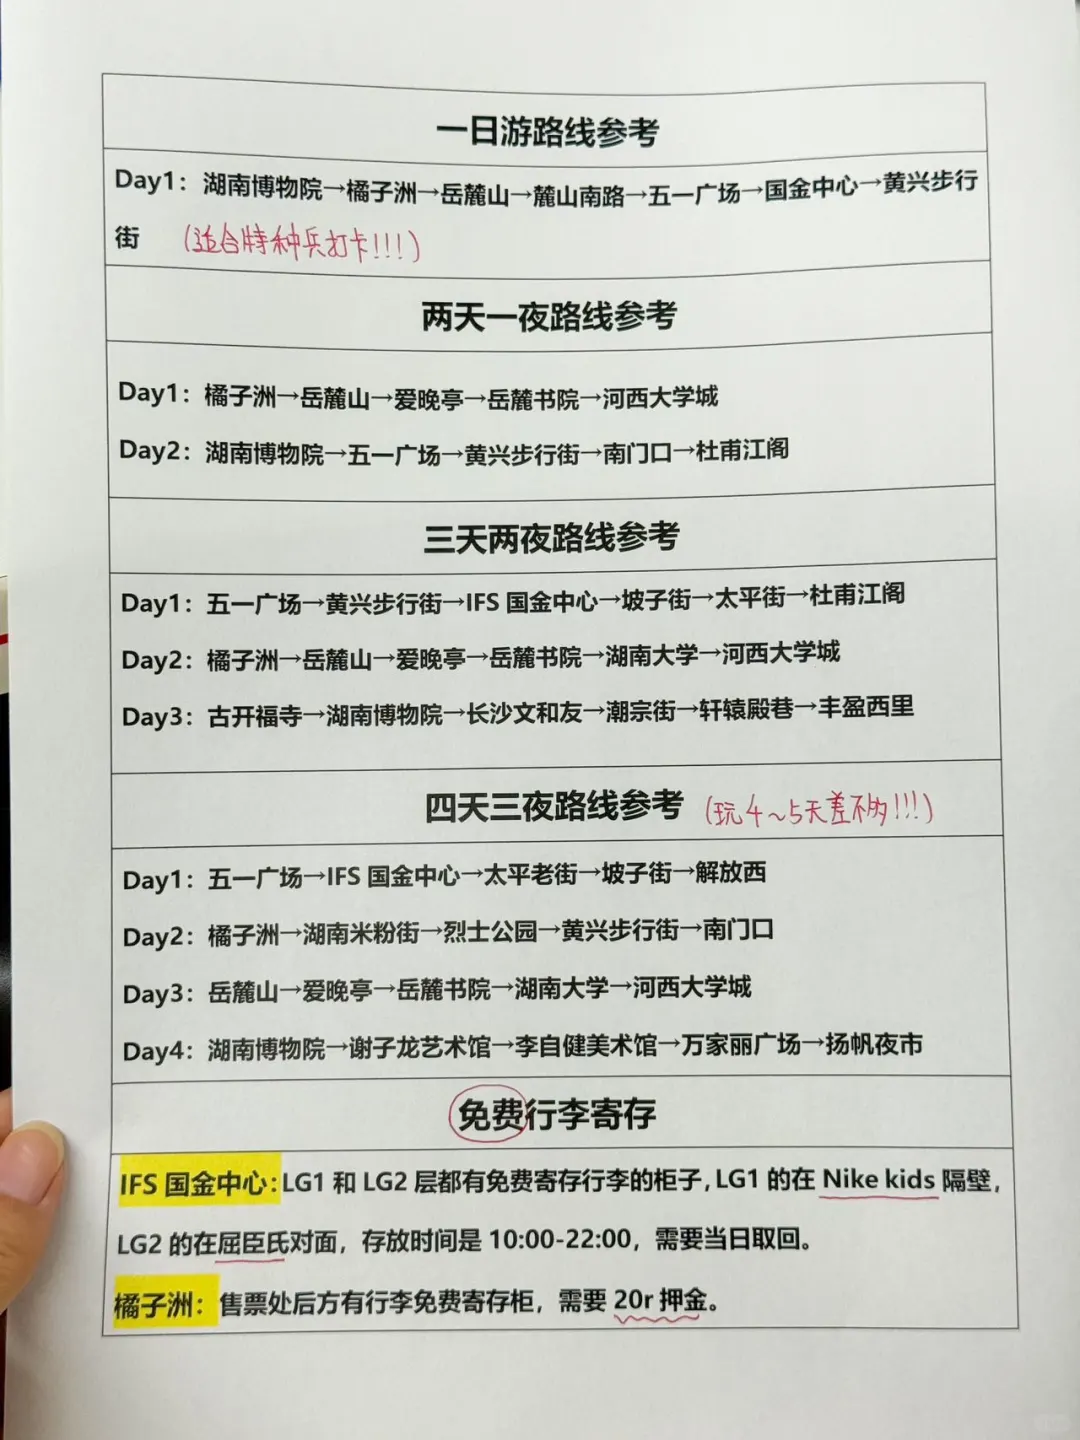 一日游路线参考
Day1：湖南博物院→橘子洲→岳麓山→麓山南路→五一广场→国金中心→黄兴步行
街 (适合特种兵打卡!!!)
两天一夜路线参考
Day1：橘子洲→岳麓山→爱晚亭→岳麓书院→河西大学城
Day2：湖南博物院→五一广场→黄兴步行街→南门口→杜甫江阁
三天两夜路线参考
Day1：五一广场→黄兴步行街→IFS 国金中心→坡子街→太平街→杜甫江阁
Day2：橘子洲→岳麓山→爱晚亭→岳麓书院→湖南大学→河西大学城
Day3：古开福寺→湖南博物院→长沙文和友→潮宗街→轩辕殿巷→丰盈西里
四天三夜路线参考 (玩4~5天差不多!!!)
Day1：五一广场→IFS 国金中心→太平老街→坡子街→解放西
Day2：橘子洲→湖南米粉街→烈士公园→黄兴步行街→南门口
Day3：岳麓山→爱晚亭→岳麓书院→湖南大学→河西大学城
Day4：湖南博物院→谢子龙艺术馆→李自健美术馆→万家丽广场→扬帆夜市
免费行李寄存
IFS 国金中心：LG1 和 LG2 层都有免费寄存行李的柜子，LG1 的在 Nike kids 隔壁，
LG2 的在屈臣氏对面，存放时间是 10:00-22:00，需要当日取回。
橘子洲：售票处后方有行李免费寄存柜，需要 20r 押金。